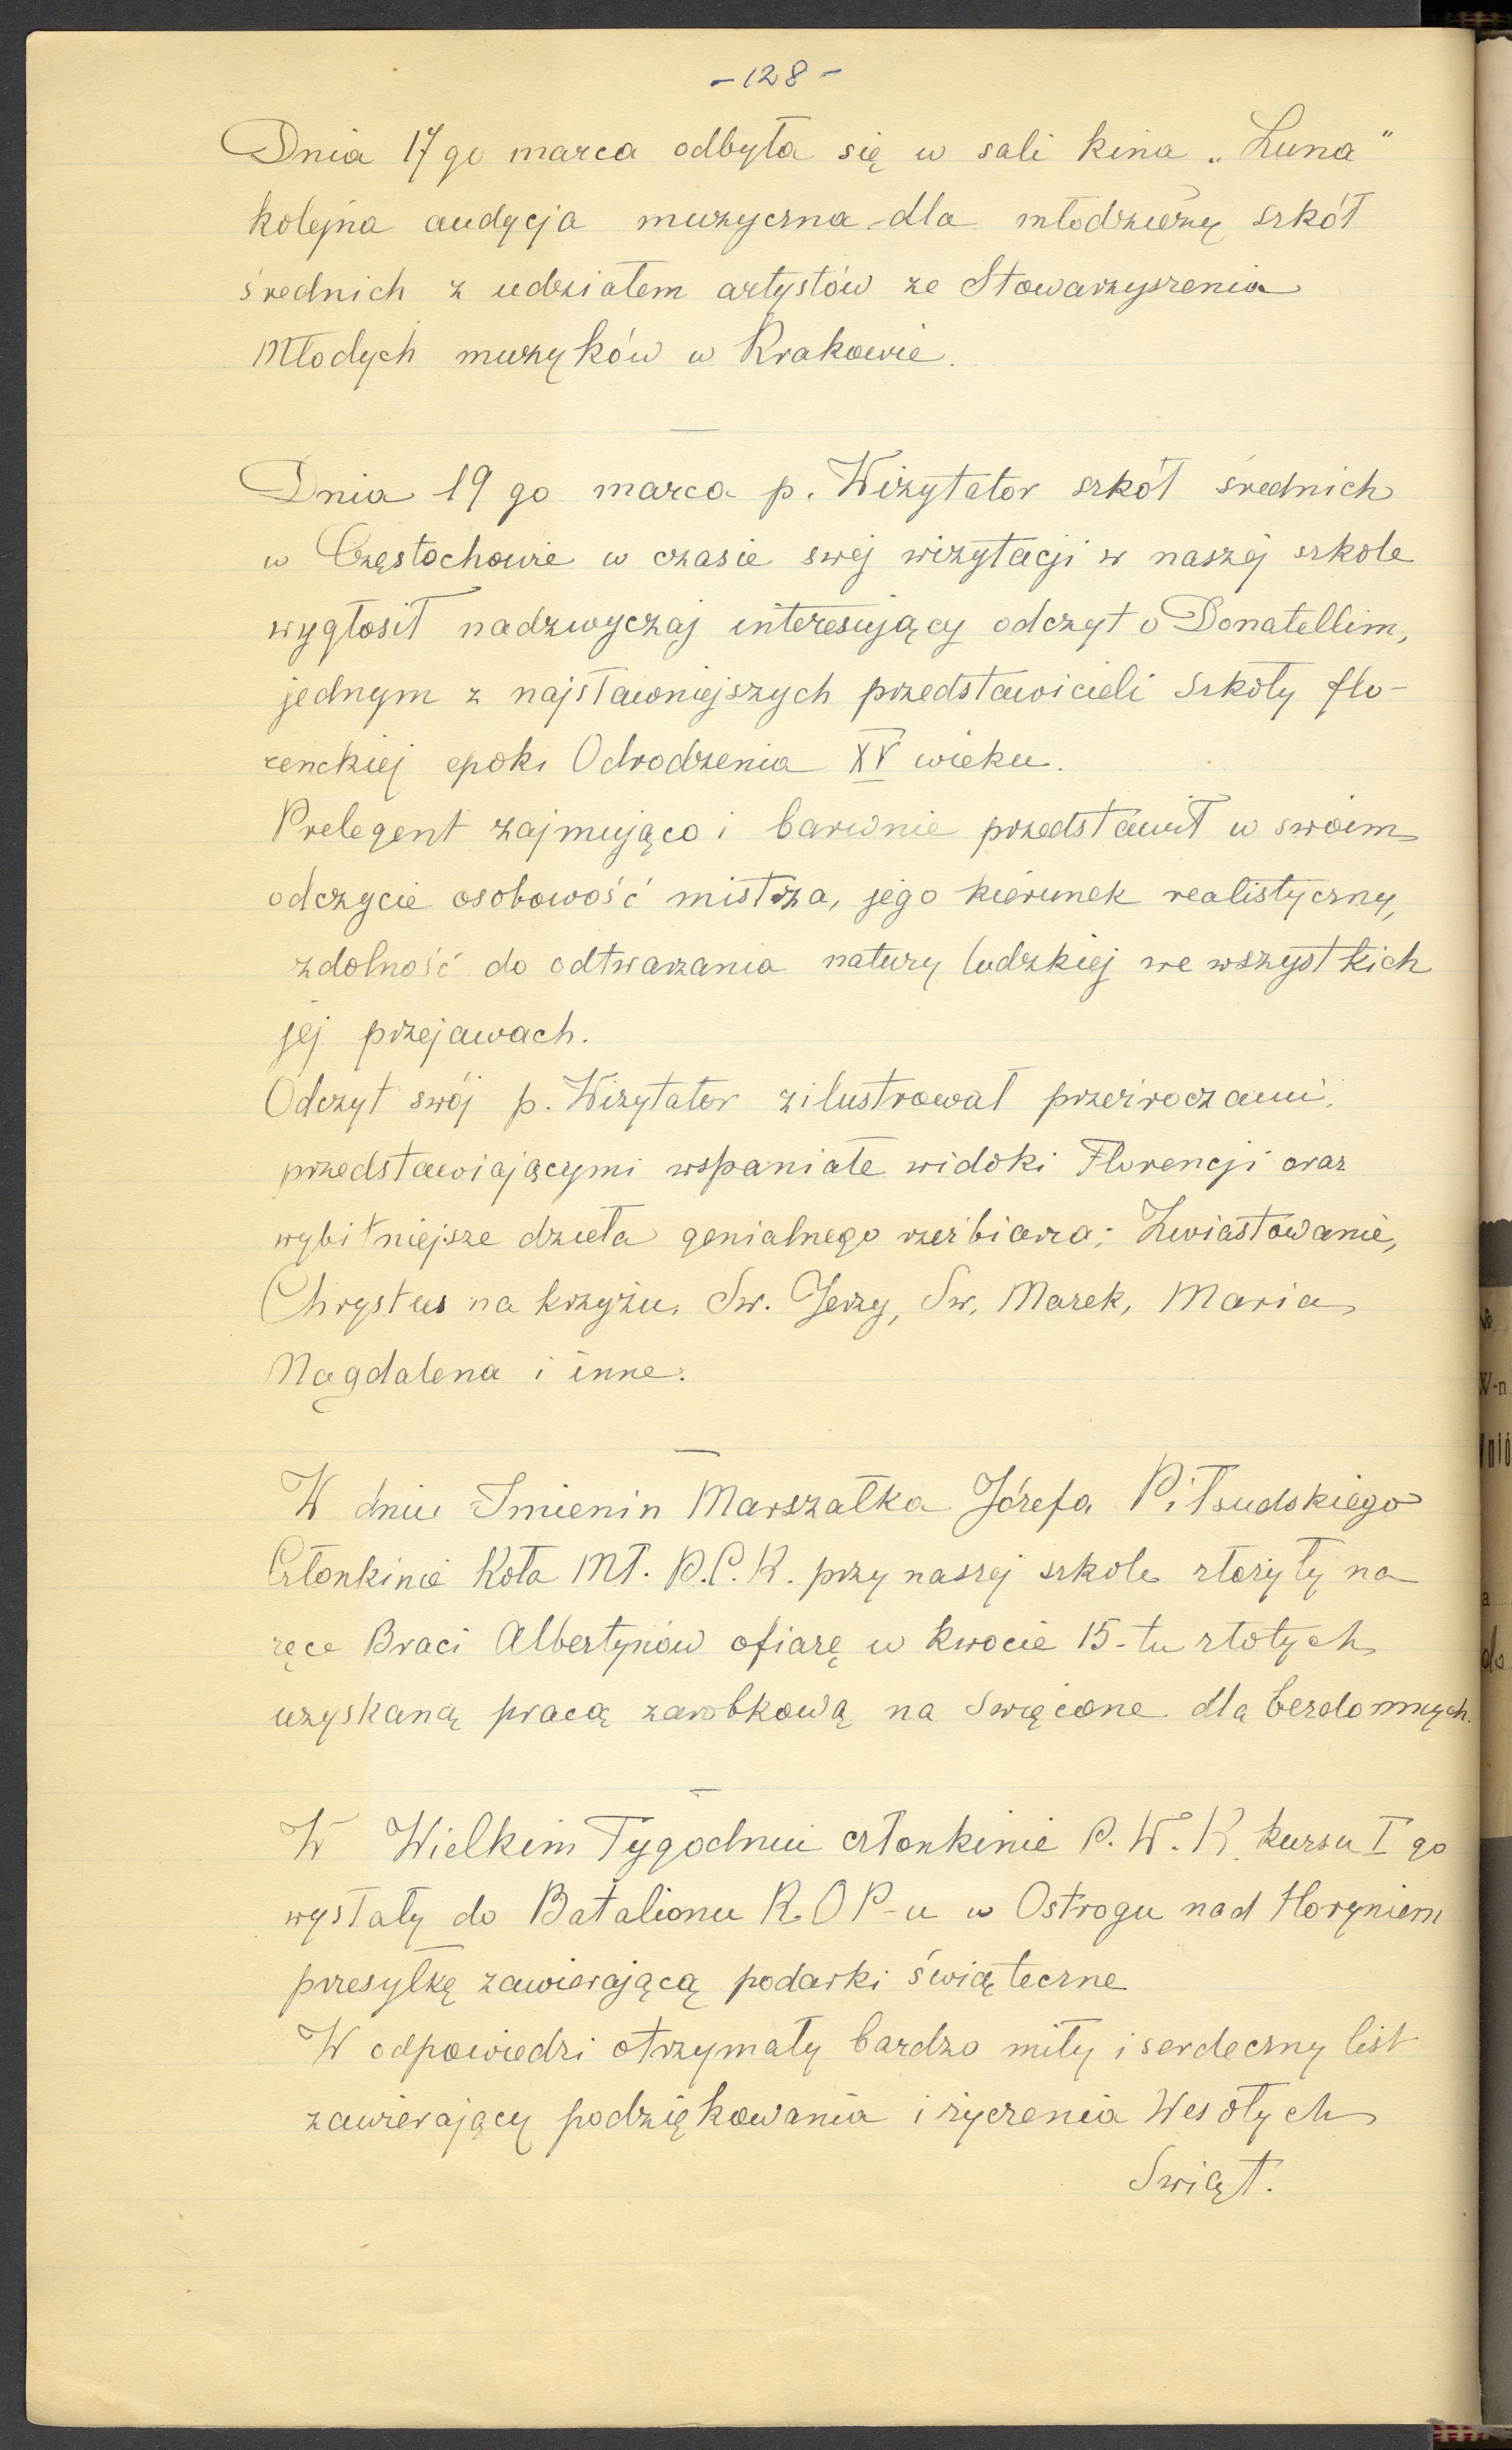 - 128 -
Dnia 17 go marca odbyła się w sali kina „Luna"
kolejna audycja muzyczna dla młodzieży szkół
średnich z udziałem artystów ze Stowarzyszenia
Młodych muzyków w Krakowie.
Dnia 19 go marca p. Wizytator szkół średnich
w Częstochowie w czasie swej wizytacji w naszej szkole
wygłosił nadzwyczaj interesujący odczyt o Donatellim,
jednym z najsławniejszych przedstawicieli Szkoły flo-
renckiej epoki Odrodzenia XV wieku.
Prelegent zajmująco i barwnie przedstawił w swoim
odczycie osobowość mistrza, jego kierunek realistyczny,
zdolność do odtwarzania natury ludzkiej we wszystkich
jej przejawach.
Odczyt swój p. Wizytator zilustrował przeźroczami,
przedstawiającymi wspaniałe widoki Florencji oraz
wybitniejsze dzieła genialnego rzeźbiarza; Zwiastowanie,
Chrystus na krzyżu, Św. Jerzy, Św. Marek, Maria
Magdalena i inne.
W dniu Imienin Marszałka Józefa Piłsudskiego
Członkinie Koła Mł. P.C.K. przy naszej szkole złożyły na
ręce Braci Albertynów ofiarę w kwocie 15-tu złotych
uzyskaną pracą zarobkową na Święcone dla bezdomnych.
W Wielkim Tygodniu członkinie P.W.K. kursu I go
wysłały do Batalionu K.O P-u w Ostrogu nad Horyniem
przesyłkę zawierającą podarki świąteczne
W odpowiedzi otrzymały bardzo miły i serdeczny list
zawierający podziękowania i życzenia Wesołych
Świąt.